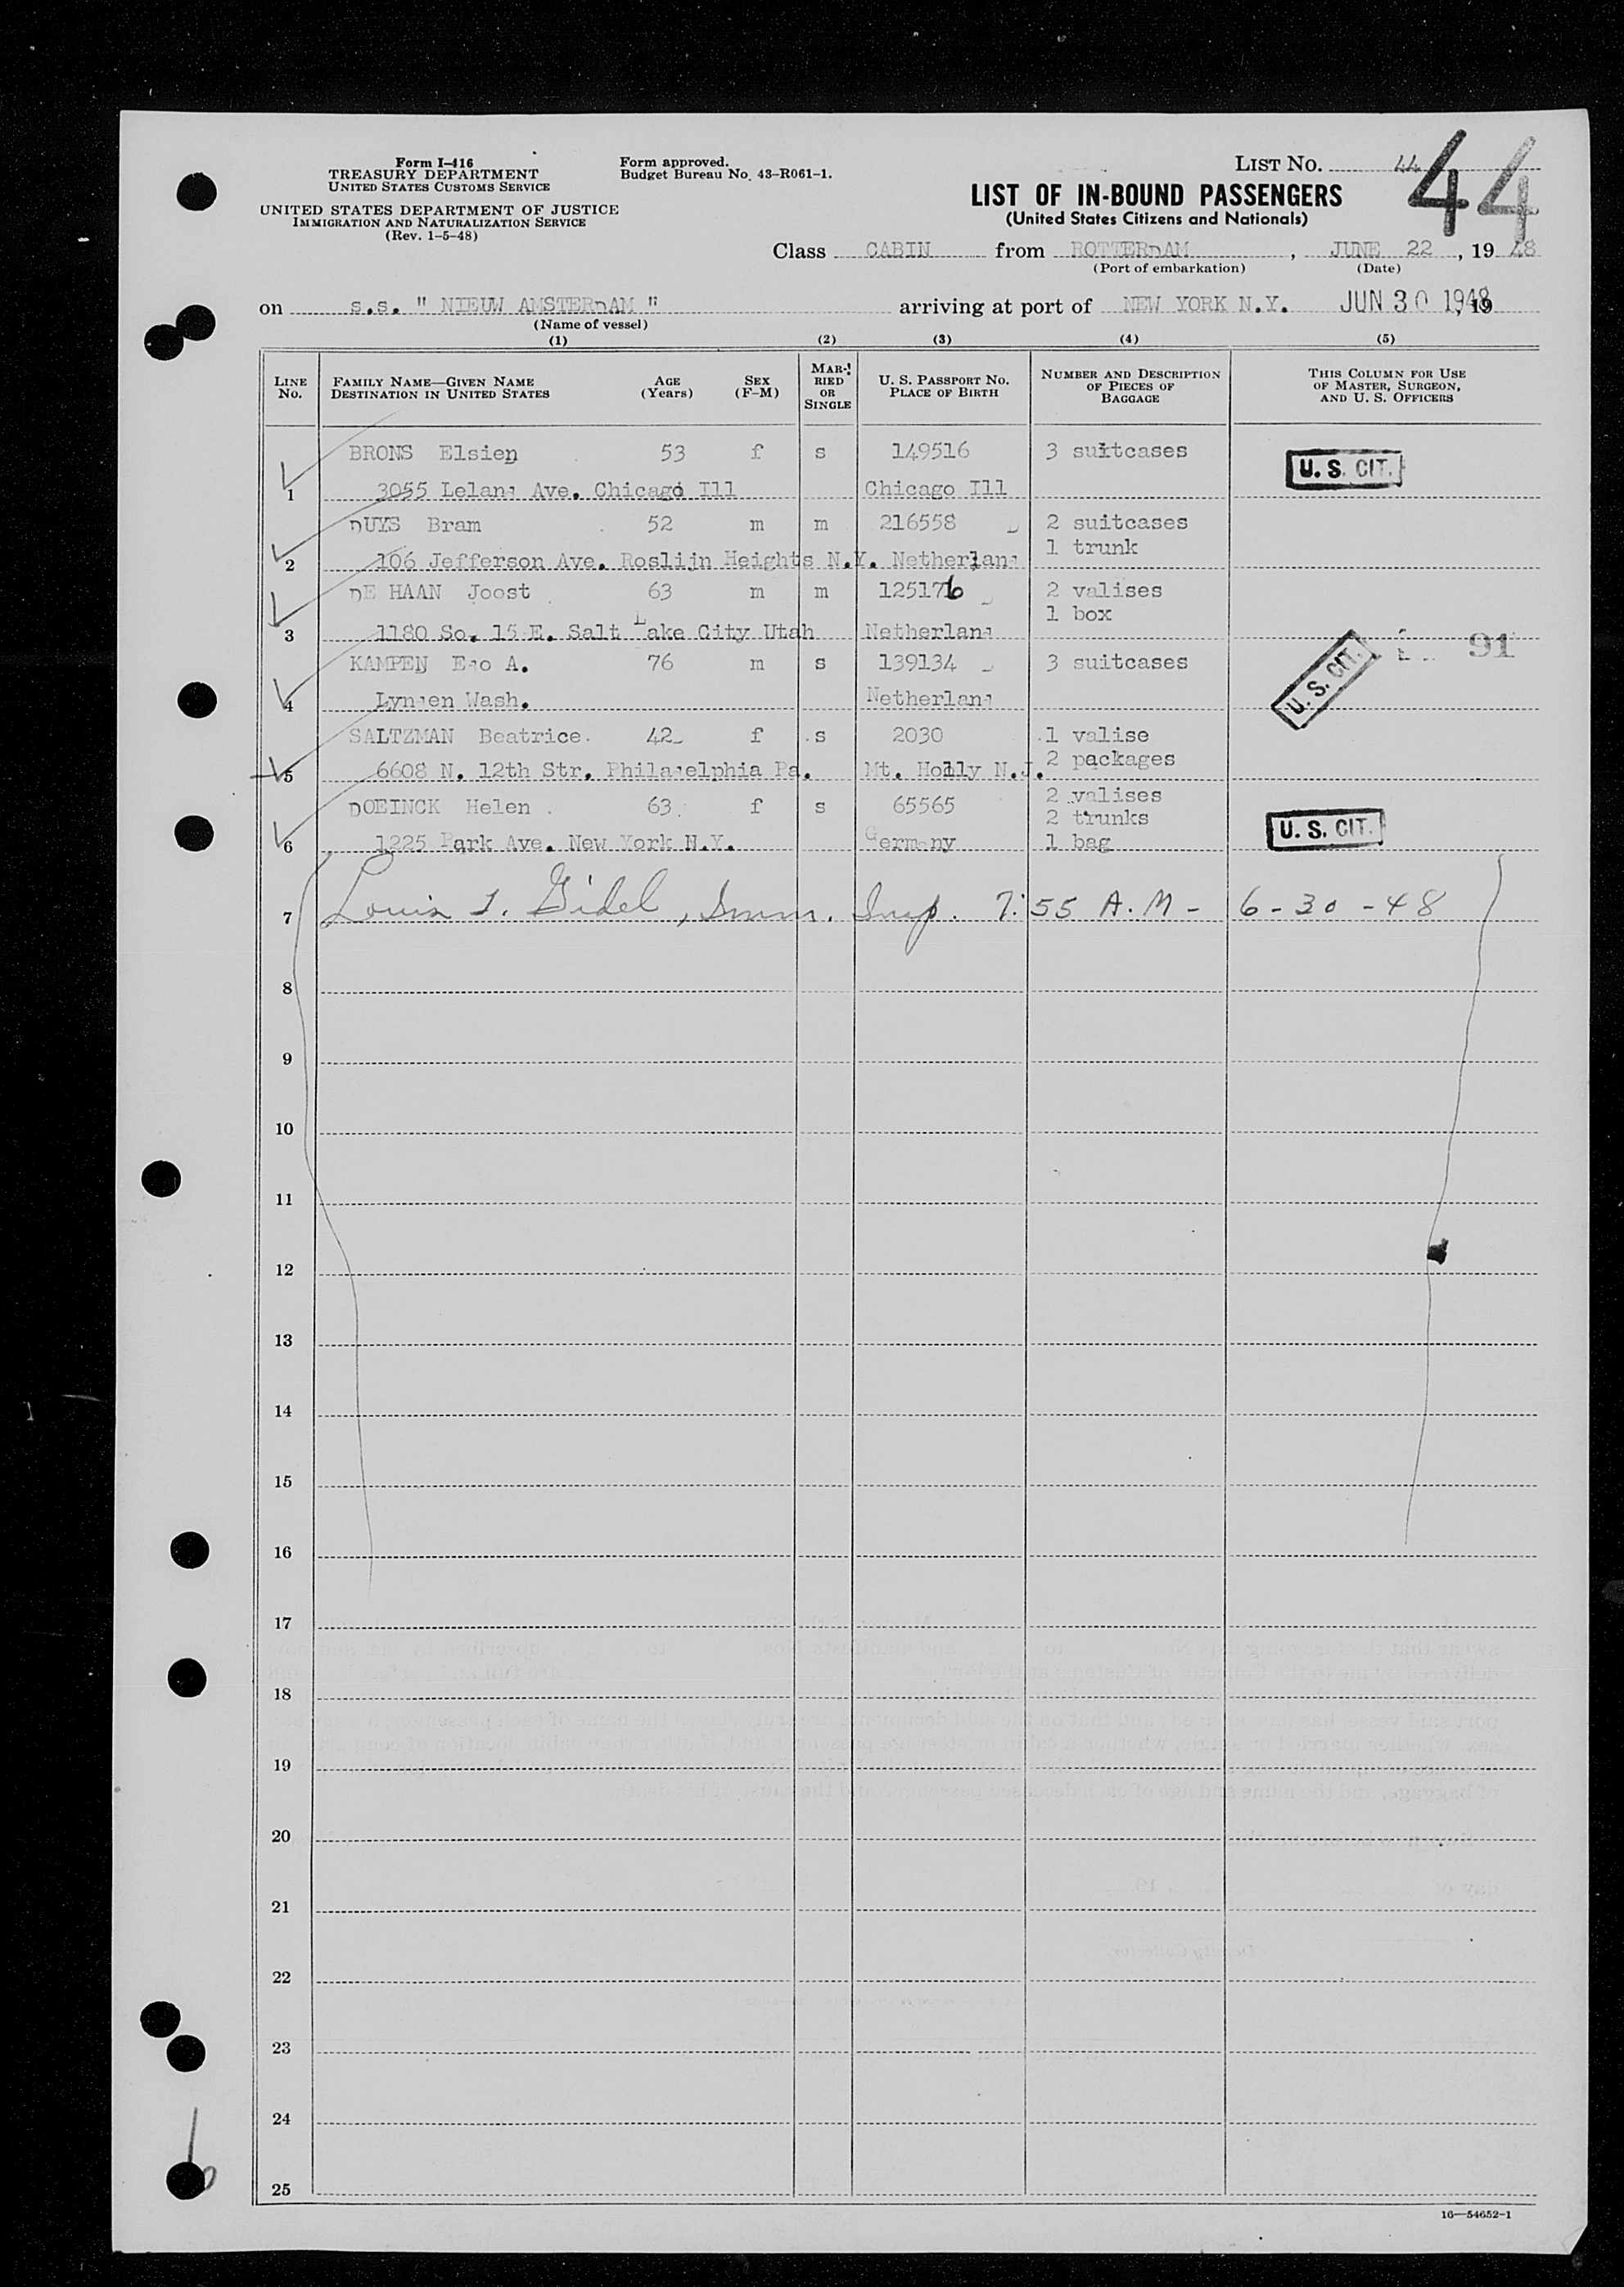 Form I-416
TREASURY DEPARTMENT
UNITED STATES CUSTOMS SERVICE
UNITED STATES DEPARTMENT OF JUSTICE
IMMIGRATION AND NATURALIZATION SERVICE
(Rev. 1-5-48)
Form approved.
Budget Bureau No. 43-R061-1.
LIST No. 44
44
LIST OF IN-BOUND PASSENGERS
(United States Citizens and Nationals)
Class CABIN from ROTTERDAM, JUNE 22, 19 48
(Port of embarkation) (Date)
on s.s. " NIEUW AMSTERDAM " arriving at port of NEW YORK N.Y. JUN 30 1948, 19
(Name of vessel)
(1) (2) (3) (4) (5)
LINE No. FAMILY NAME—GIVEN NAME DESTINATION IN UNITED STATES AGE (Years) SEX (F-M) MARRIED OR SINGLE U. S. PASSPORT No. PLACE OF BIRTH NUMBER AND DESCRIPTION OF PIECES OF BAGGAGE THIS COLUMN FOR USE OF MASTER, SURGEON, AND U. S. OFFICERS
BRONS Elsien 53 f s 149516 3 suitcases U. S. CIT.
1 3055 Leland Ave. Chicago Ill Chicago Ill
DUYS Bram 52 m m 216558 2 suitcases
2 106 Jefferson Ave. Roslijn Heights N.Y. Netherland 1 trunk
DE HAAN Joost 63 m m 125176 2 valises
1 box
3 1180 So. 15 E. Salt Lake City Utah Netherland
KAMPEN Edo A. 76 m s 139134 3 suitcases U. S. CIT. 91
4 Lynden Wash. Netherland
SALTZMAN Beatrice. 42 f s 2030 1 valise
5 6608 N. 12th Str. Philadelphia Pa. Mt. Holly N.J. 2 packages
DOEINCK Helen 63 f s 65565 2 valises
2 trunks U. S. CIT.
6 1225 Park Ave. New York N.Y. Germany 1 bag
7 Louis J. Gidel, Imm. Insp. 7:55 A.M - 6-30-48
8
9
10
11
12
13
14
15
16
17
18
19
20
21
22
23
24
25
16—54652-1